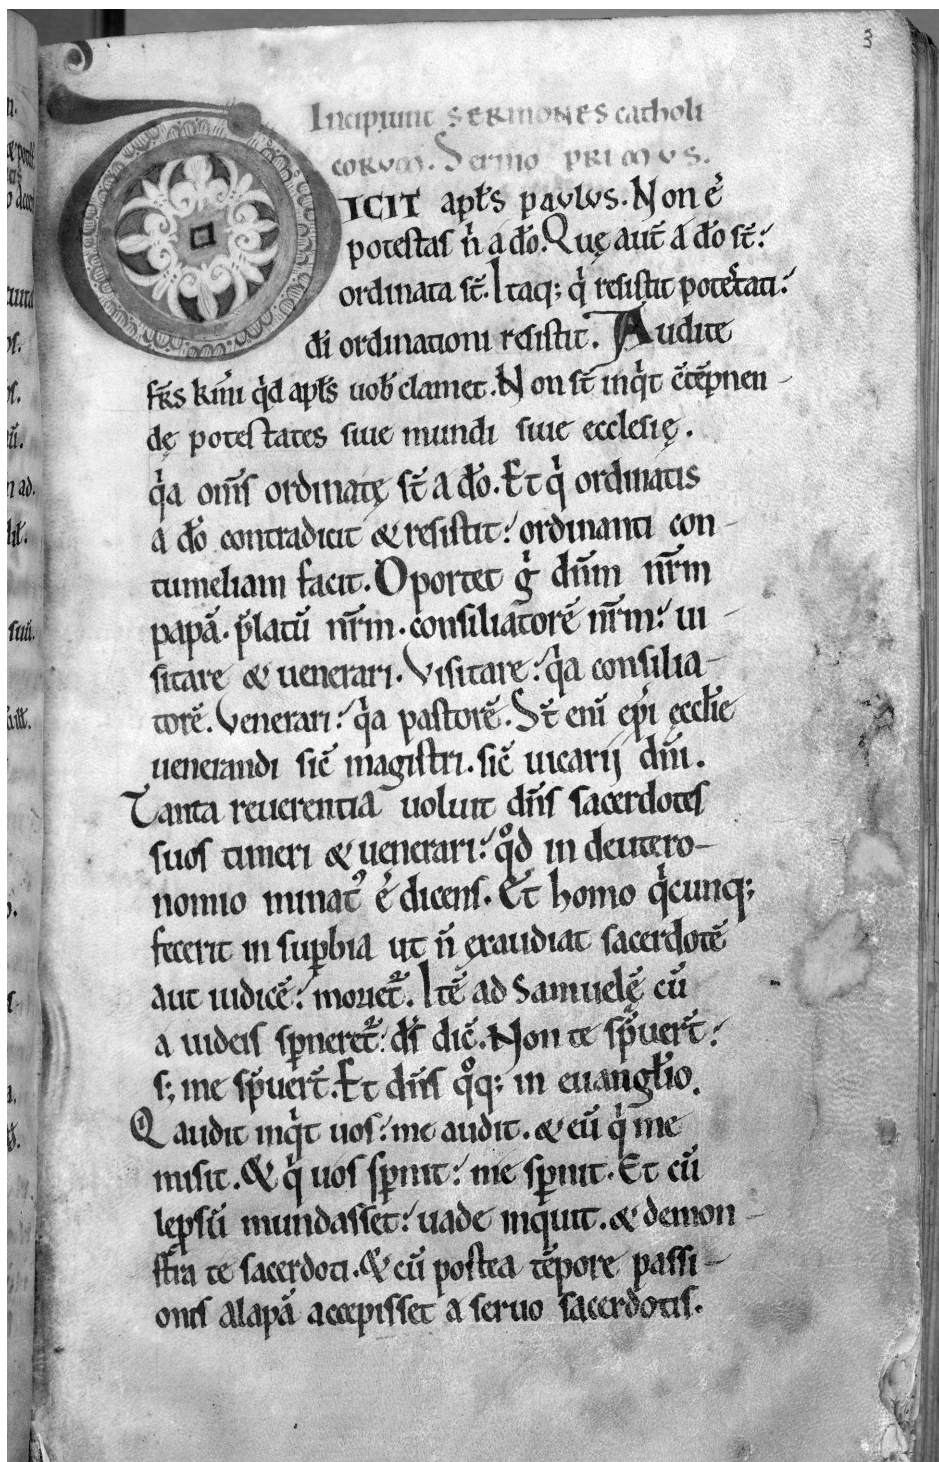 3
Incipiunt sermones catholi
corum. Sermo primus.
DICIT apl̃s paulus. Non ē
potestas ñ a dõ. Quę aut̃ a dõ st̃:
ordinata st̃. Itaq; q̇ resistit potestati:
dĩ ordinationi resistit. Audite
fr̃s km̃i qd̃ apl̃s uob̃ clamet. Non st̃ inq̇t
dę potestates siue mundi siue ecclesię.
q̇a om̃s ordinatę st̃ a dõ. Et q̇ ordinatis
a dõ contradicit & resistit: ordinanti con-
tumeliam facit. Oportet g̊ dñm nr̃m
papā. p̃latū nr̃m. consiliatorē nr̃m: ui-
sitare & uenerari. Visitare: q̇a consilia-
torē. Venerari: q̇a pastorē. St̃ enī ep̃i ęccl̃ie
uenerandi sic̃ magistri. sic̃ uicarij dñi.
Tanta reuerentia uoluit dñs sacerdotes
suos timeri & uenerari: qd̊ in deutero-
nomio minat᷒ ē dicens. Et homo q̇cunq;
fecerit in sup̱bia ut ñ exaudiat sacerdotē
aut iudicē: moriet᷒. Itē ad Samuelę̄ cū
a iudeis sp̱neret᷒: ds̃ dic̃. Non te sp̃uer̃t:
s; me sp̃uer̃t. Et dñs q̊q; in euangl̃io.
Q̇ audit inq̇t uos: me audit. & eū q̇ me
misit. & q̇ uos sp̱nit: me sp̱nit. Et cū
lep̱sū mundasset: uade inquit. & demon-
stra te sacerdoti. & cū postea tēpore passi-
onis alapā accepisset a seruo sacerdotis.